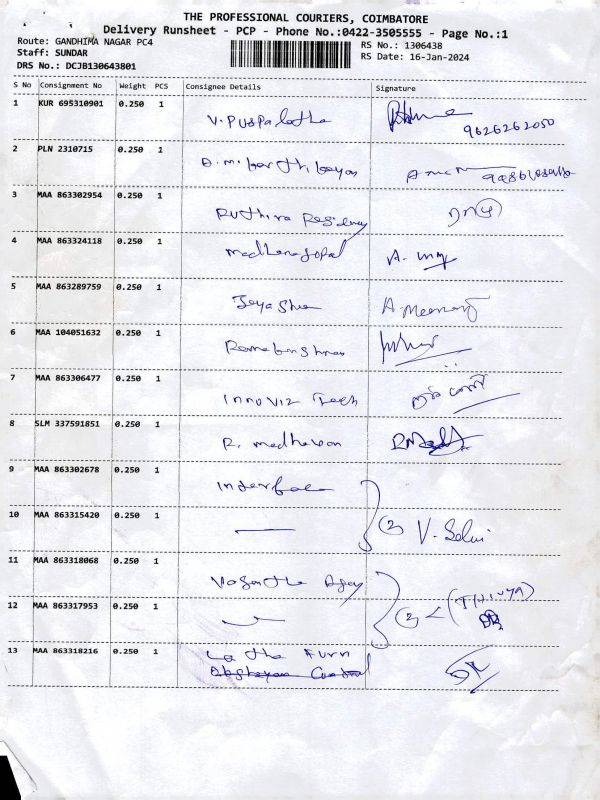 THE PROFESSIONAL COURIERS, COIMBATORE
Delivery Runsheet - PCP - Phone No.:0422-3505555 - Page No.:1
Route: GANDHIMA NAGAR PC4
Staff: SUNDAR
DRS No.: DCJB130643801
RS No.: 1306438
RS Date: 16-Jan-2024
S No Consignment No Weight PCS Consignee Details Signature
1 KUR 695310901 0.250 1 V. Puspalatha
9626262050
2 PLN 2310715 0.250 1
3 MAA 863302954 0.250 1 Ruthira Residency
4 MAA 863324118 0.250 1 Madhanagopal A.
5 MAA 863289759 0.250 1 Jeyashree A Meena
6 MAA 104051632 0.250 1
7 MAA 863306477 0.250 1 Innoviz Tech
8 SLM 337591851 0.250 1 R. Madhavan
9 MAA 863302678 0.250 1 Interface
10 MAA 863315420 0.250 1 — (2) V. Selvi
11 MAA 863318068 0.250 1 Vasantha
12 MAA 863317953 0.250 1 (2) < (THIVYA)
13 MAA 863318216 0.250 1 Latha Furn